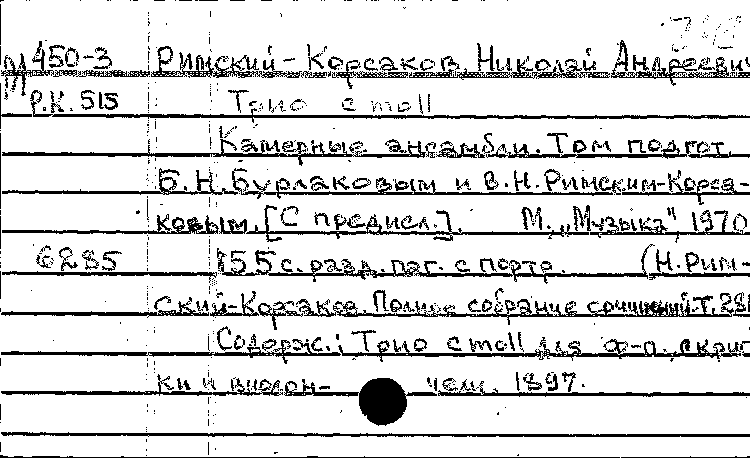 М 450-3 Римский-Корсаков, Николай Андреевич
Р.К. 515 Трио c moll
Камерные ансамбли. Том подгот.
Б.Н. Бурлаковым и В.Н. Римским-Корса-
ковым. [С предисл.]. М., „Музыка", 1970
6285 155 с. разд. паг. с портр. (Н. Рим-
ский-Корсаков. Полное собрание сочинений. Т. 28
Содерж.: Трио c moll для ф-п., скрип
ки и виолон- чели. 1897.